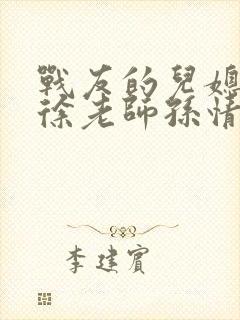 戰友的兒媳
徐老師孫情
李建賓